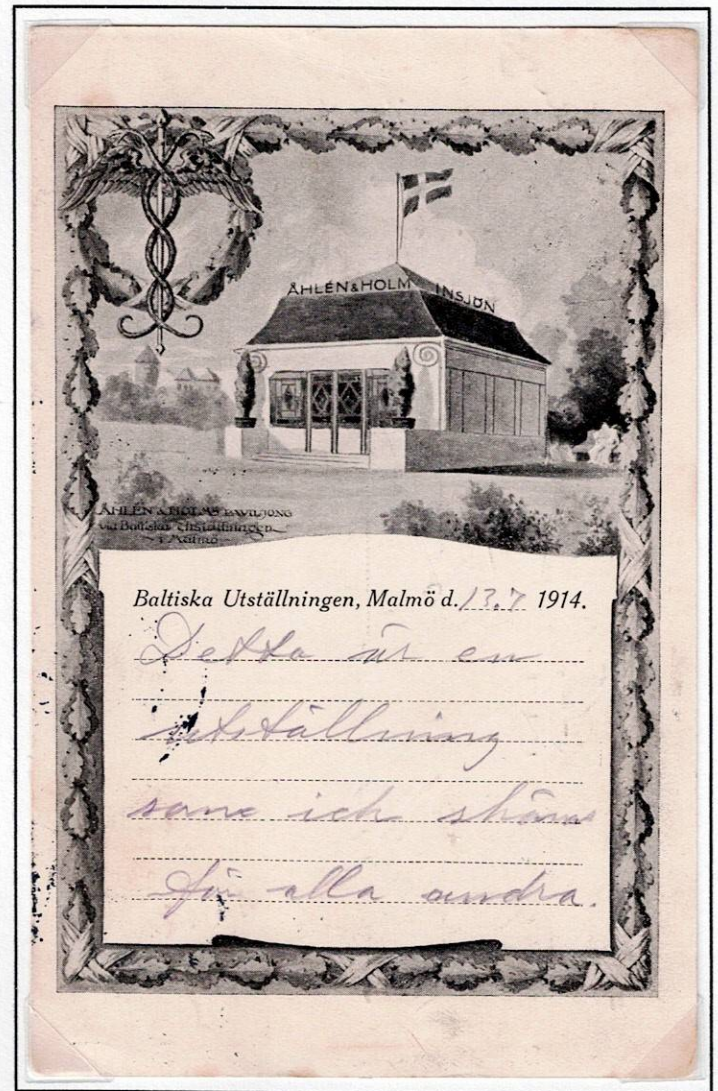 ÅHLÉN & HOLM INSJÖN
ÅHLÉN & HOLMS PAVILJONG
vid Baltiska Utställningen
i Malmö
Baltiska Utställningen, Malmö d. 13.7 1914.
Detta är en
utställning
som ich
för alla andra.